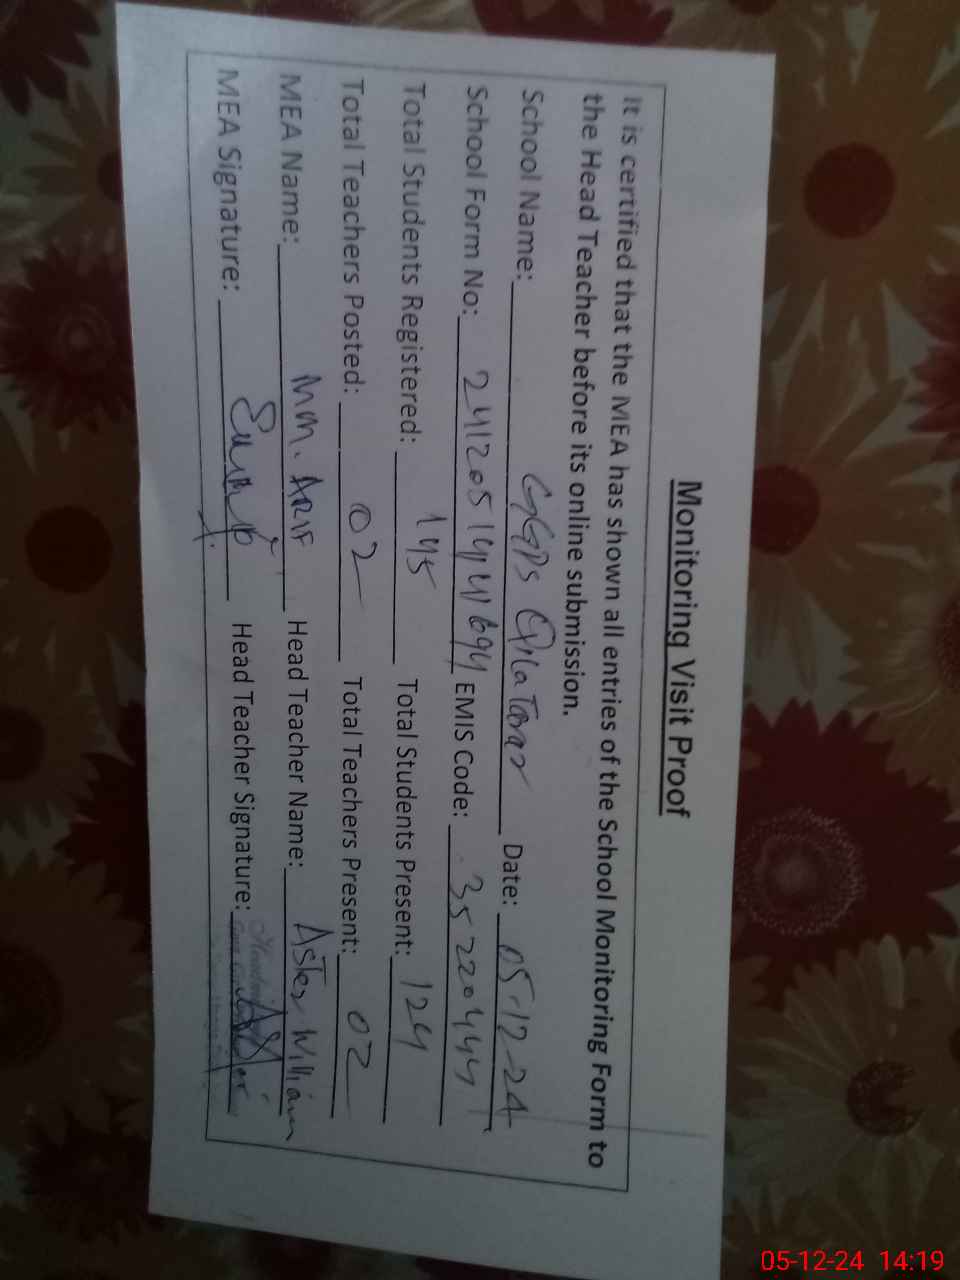 Monitoring Visit Proof
It is certified that the MEA has shown all entries of the School Monitoring Form to
the Head Teacher before its online submission.
School Name: GGPS Qila Tarar Date: 05-12-24
School Form No: 2412051441694 EMIS Code: 35220447
Total Students Registered: 145 Total Students Present: 124
Total Teachers Posted: 02 Total Teachers Present: 02
MEA Name: MM. ARIF Head Teacher Name: Aster William
MEA Signature: Head Teacher Signature: Aster
05-12-24 14:19